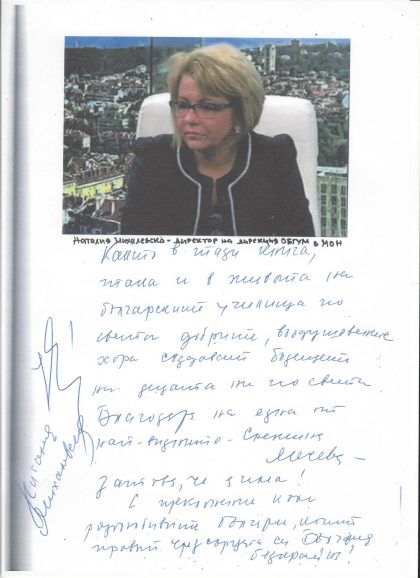 Наталия Михалевска - директор на дирекция ОБГУМ в МОН
Както в тази книга,
така и в живота на
българските училища по
света добрите, въодушевените
хора създават бъдещето
на децата ни по света
Благодаря на една от
най-видните - Снежина
Мечева -
затова, че я има!
С преклонение към
българи, които
България
безкрайна!
Наталия
Михалевска